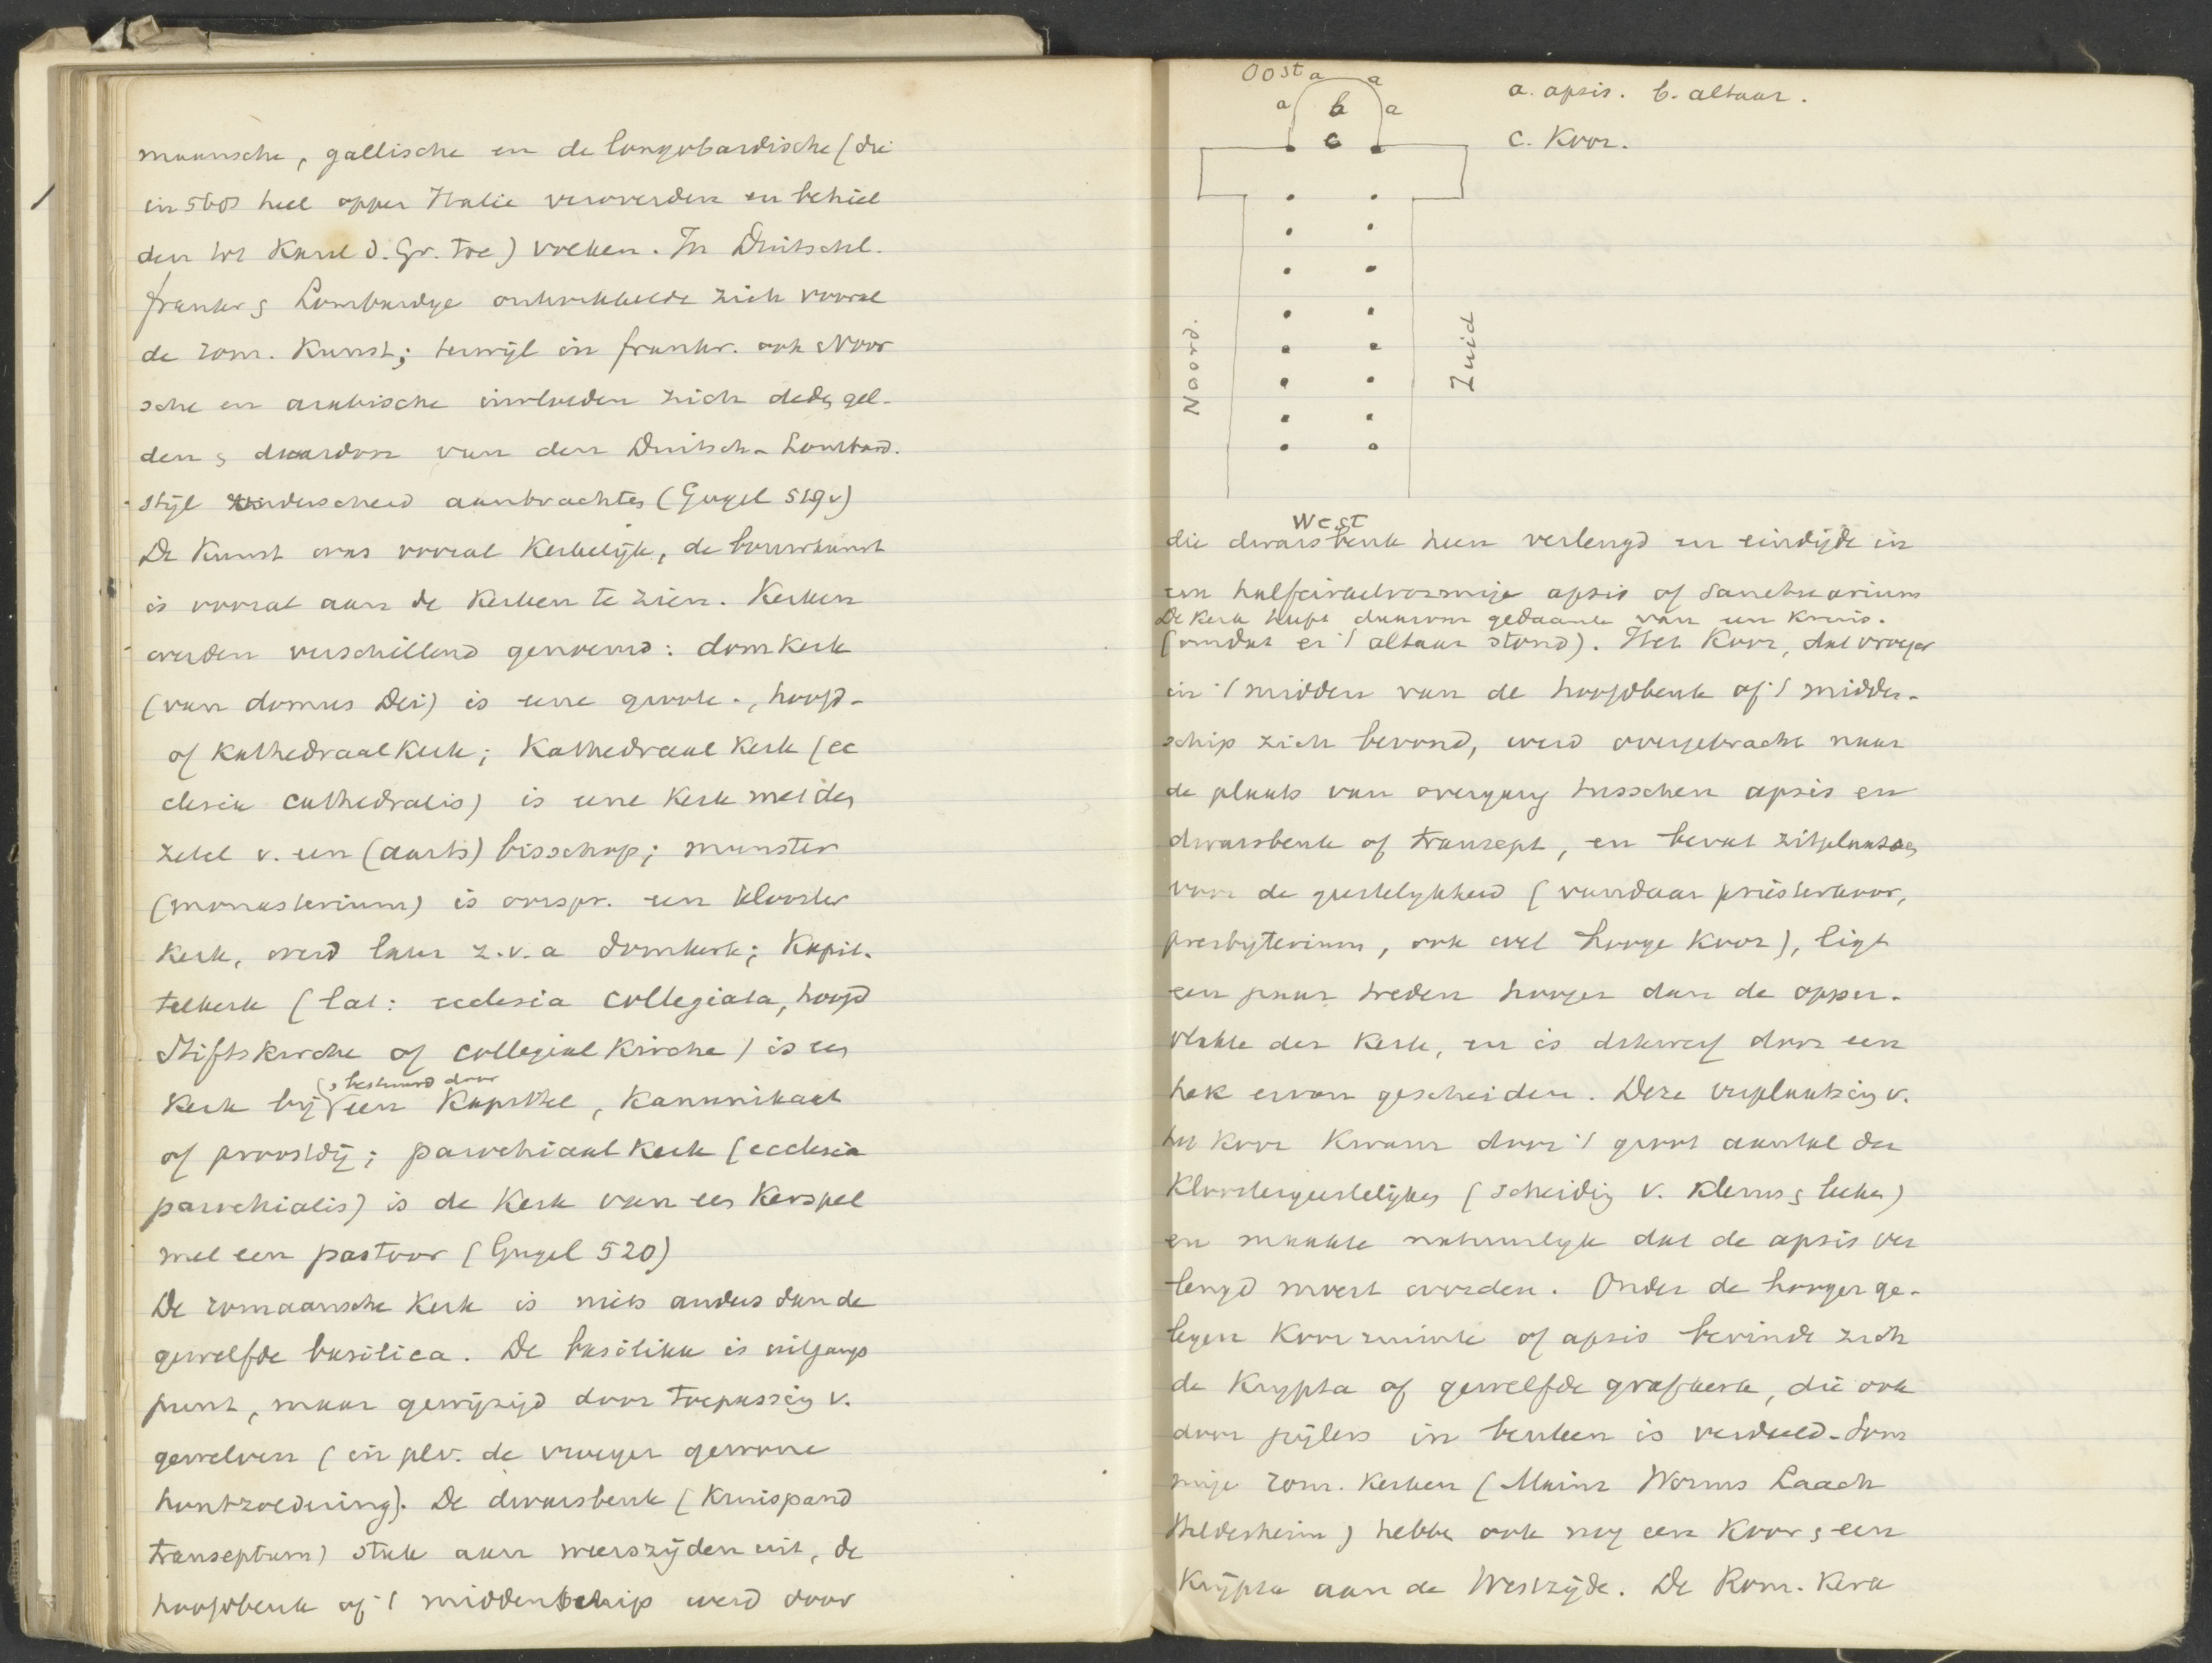 maansche, gallische en de longobardische (die
in 568 heel opper Italie veroverden en behiel
den tot Karel d. Gr. toe) volken. In Duitschl.
frankr & Lombardye ontwikkelde zich vooral
de rom. Kunst; terwijl in frankr. ook Noor
sche en arabische invloeden zich dedg gel-
den & daardoor van den Duitsch-Lombard.
stijl onderscheid aanbrachteg (Gugel 519v)
De Kunst was vooral Kerkelijk, de bouwkunst
is vooral aan de Kerken te zien. Kerken
werden verschillend genoemd: domkerk
(van domus Dei) is eene groote-, hoofd-
of Kathedraalkerk; Kathedraal kerk (ec
clesia cathedralis) is eene kerk met deg
zetel v. een (aarts) bisschop; munster
(monasterium) is oorspr. een klooster
kerk, werd later z.v.a domkerk; Kapit-
telkerk (lat: ecclesia collegiata, hoogd
Stiftskirche of collegial Kirche) is eeg
Kerk bij (& bestuurd door een Kapittel, Kanunikaat
of proostdij; parochiaal kerk (ecclesia
parochialis) is de Kerk van eeg Kerspel
met een pastoor (Gugel 520)
De romaansche Kerk is niets anders dan de
gewelfde basilica. De basilika is uitgangs
punt, maar gewijzigd door toepassing v.
gewelven (in plv. de vroeger gewone
houtzoldering). De dwarsbeuk (Kruispand
transeptum) stak aan weerszijden uit, de
hoofdbeuk of 't middenschip werd door
Oost a a
a b a
c
a. apsis. b. altaar.
C. Koor.
Noord.
Zuid
West
die dwarsbeuk heen verlengd en eindigde in
een halfcirkelvormige apsis of Sanctuarium
De kerk heeft daarom gedaante van een Kruis.
(omdat er 't altaar stond). Het Koor, dat vroeger
in 't midden van de hoofdbeuk of 't midden-
schip zich bevond, werd overgebracht naar
de plaats van overgang tusschen apsis en
dwarsbeuk of transept, en bevat zitplaatseg
voor de geestelykheid (vandaar priesterkoor,
presbyterium, ook wel hooge Koor), ligt
een paar treden hooger dan de opper-
vlakte der Kerk, en is dikwerf door een
hek ervan gescheiden. Deze verplaatsing v.
het Koor Kwam door 't groot aantal der
Kloostergeestelijkeg (scheiding v. Klerus & leeken)
en maakte natuurlyk dat de apsis ver
lengd moest worden. Onder de hooger ge-
legen Koorruimte of apsis bevindt zich
de Krypta of gewelfde grafkerk, die ook
door pijlers in beuken is verdeeld. Som
mige rom. Kerken (Mainz Worms Laach
Hildesheim) hebbe ook nog een Koor & een
Krypta aan de Westzijde. De Rom. Kerk